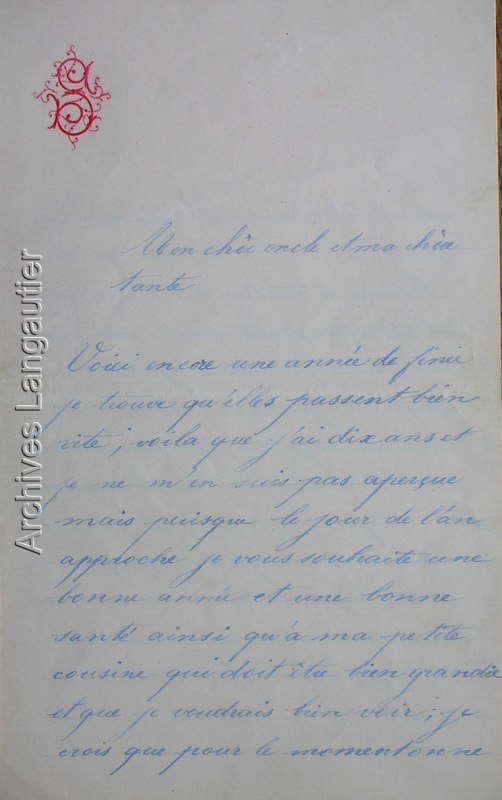 Mon chèr oncle et ma chère
tante
Voici encore une année de finie
je trouve qu'elles passent bien
vite; voila que j'ai dix ans et
je ne m'en suis pas aperçue
mais puisque le jour de l'an
approche je vous souhaite une
bonne année et une bonne
santé ainsi qu'à ma petite
cousine qui doit être bien grandie
et que je voudrais bien voir; je
crois que pour le moment on ne
Archives Langautier